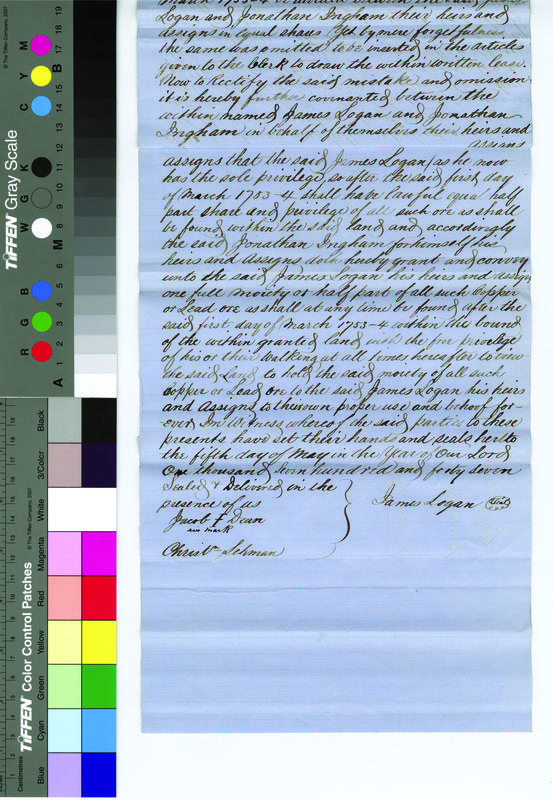 March 1753-4 be divided between the said James
Logan and Jonathan Ingham their heirs and
assigns in equal shares Yet by mere forgetfulness
the same was omitted to be inserted in the articles
given to the Clerk to draw the within written lease.
Now to Rectify the said mistake and omission
it is hereby further covenanted between the
within named James Logan and Jonathan
Ingham in behalf of themselves their heirs and
assigns
assigns that the said James Logan (as he now
has the sole privilege so after the said first day
of March 1753-4 shall have lawful equal half
part share and privilege of all such ore as shall
be found within the said land and accordingly
the said Jonathan Ingham for himself his
heirs and assigns doth hereby grant and convey
unto the said James Logan his heirs and assigns
one full moiety or half part of all such Copper
or Lead ore as shall at any time be found after the
said first day of March 1753-4 within the bound
of the within granted land with the free privilege
of his or their walking at all times hereafter to view
the said Land to hold the said moiety of all such
Copper or Lead Ore to the said James Logan his heirs
and Assigns to their own proper use and behoof for-
ever In Witness whereof the said parties to these
presents have set their hands and seals hereto
the fifth day of May in the Year of Our Lord
One thousand seven hundred and forty seven
Sealed & Delivered in the
presence of us
James Logan (Seal)
Jacob + Dean
his mark
Christr Lehman
© The Tiffen Company, 2007
TIFFEN Gray Scale
R G B W G K C Y M
A 1 2 3 4 5 6 M 8 9 10 11 12 13 14 15 B 17 18 19
© The Tiffen Company, 2007
TIFFEN Color Control Patches
Centimetres
Blue
Cyan
Green
Yellow
Red
Magenta
White
3/Color
Black